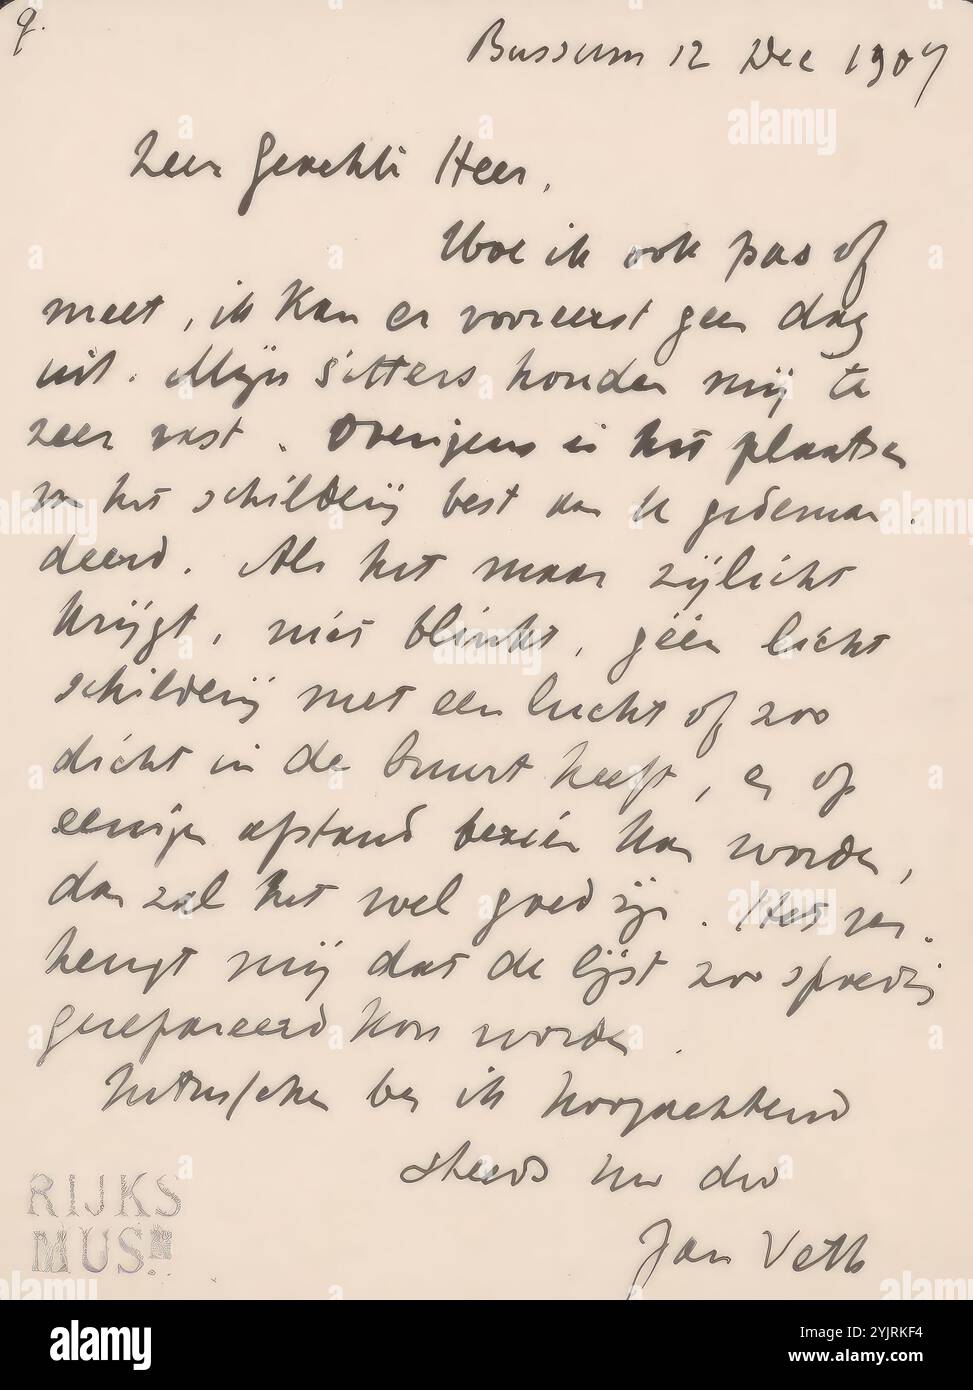 9.
Bussum 12 Dec 1907
Zeer Geachte Heer,
Hoe ik ook pas of
meet, ik kan er vooreerst geen dag
uit. Mijn sitters houden mij te
zeer vast. Overigens is het plaatsen
van het schilderij best aan U gedeman-
deerd. Als het maar zijlicht
krijgt, niet blinkt, géén licht
schilderij met een lucht of zoo
dicht in de buurt heeft, en op
eenigen afstand bezien kan worden,
dan zal het wel goed zijn. Het ver-
heugt mij dat de lijst zoo spoedig
gerepareerd kon worden.
Intusschen ben ik hoogachtend
steeds Uw dw
Jan Veth
RIJKS
MUSM.
alamy
Image ID: 2YJRKF4
www.alamy.com